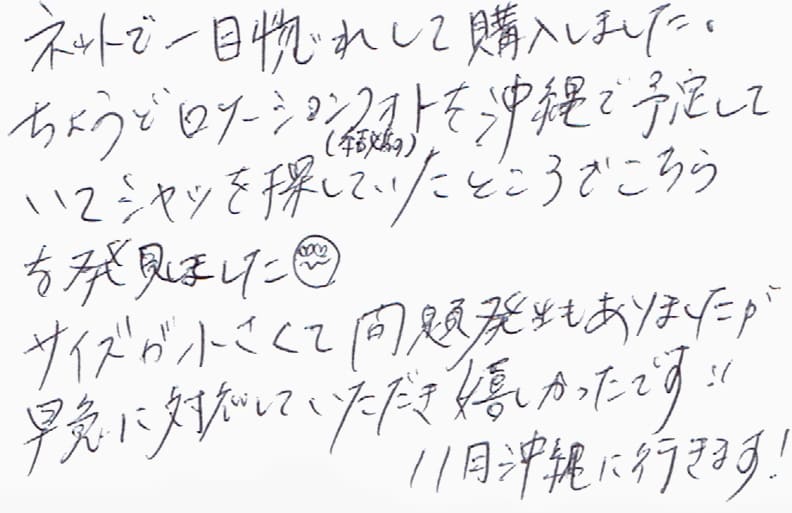 ネットで一目惚れして購入しました。
ちょうどロケーションフォトを沖縄で予定して
(結婚の)
いてシャツを探していたところでこちら
を発見しました
サイズが小さくて問題発生もありましたが
早急に対処していただき嬉しかったです!!
11月沖縄に行きます!